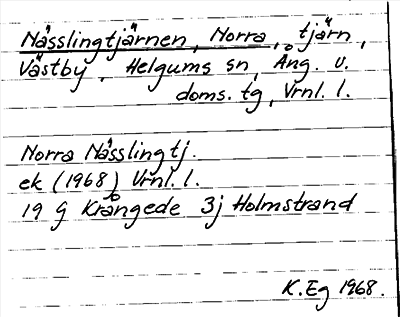 Nässlingtjärnen, Norra, tjärn,
Västby, Helgums sn, Ång. v.
doms. tg, Vrnl. l.
Norra Nässlingtj.
ek (1968) Vrnl. l.
19 G Krångede 3j Holmstrand
K. Eg 1968.